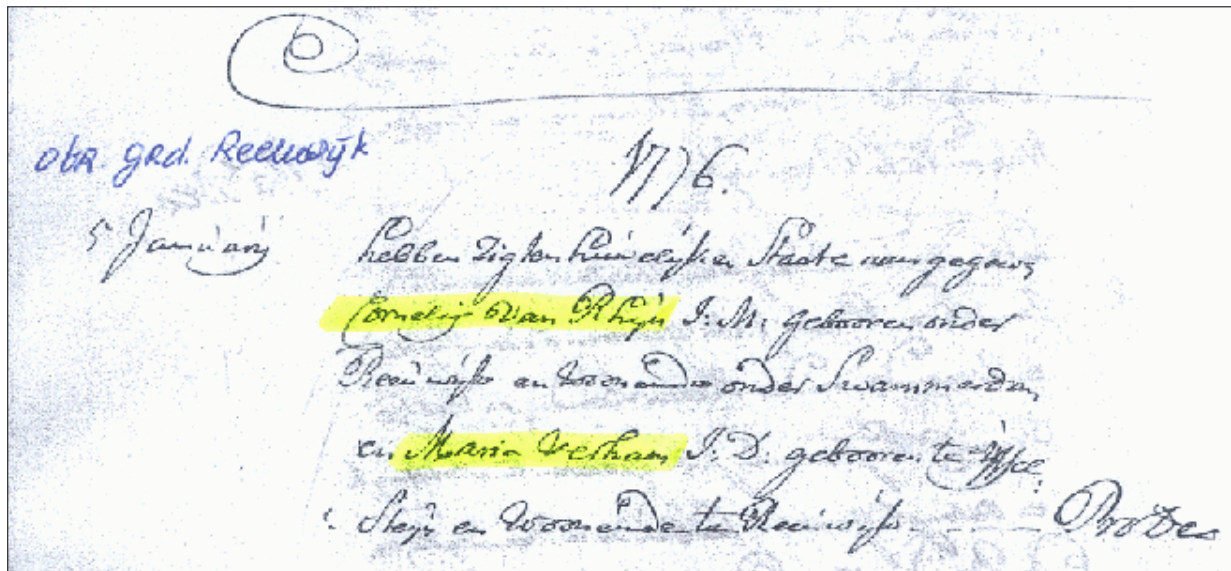 obR. gRd. Reeuwijk
1776.
5 Januarij hebben zig ten huwelijken Staate aangegeven
Cornelis Van Rhijn J: M: gebooren onder
Reeuwijk en woonende onder Swammerdam
en Maria Verham J: D: gebooren te Ijssel
Steijn en woonende te Reeuwijk Prodeo